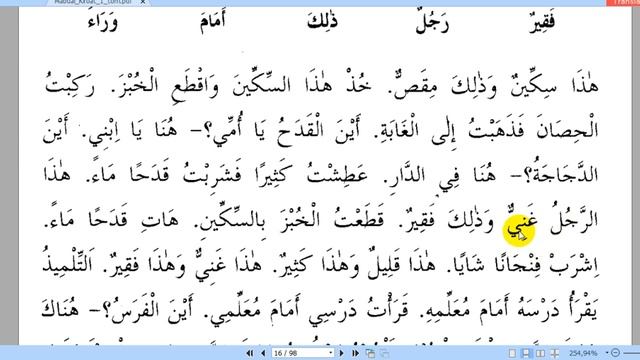 Mabdai_Kiroat_1_cont.pdf
Translat
فَقِيرٌ رَجُلٌ ذٰلِكَ أَمَامَ وَرَاءَ
هٰذَا سِكِّينٌ وَذٰلِكَ مِقَصٌّ. خُذْ هٰذَا السِّكِّينَ وَاقْطَعِ الْخُبْزَ. رَكِبْتُ
الْحِصَانَ فَذَهَبْتُ إِلَى الْغَابَةِ. أَيْنَ الْقَدَحُ يَا أُمِّي؟– هُنَا يَا اِبْنِي. أَيْنَ
الدَّجَاجَةُ؟– هُنَا فِي الدَّارِ. عَطِشْتُ كَثِيرًا فَشَرِبْتُ قَدَحًا مَاءً. هٰذَا
الرَّجُلُ غَنِيٌّ وَذٰلِكَ فَقِيرٌ. قَطَعْتُ الْخُبْزَ بِالسِّكِّينِ. هَاتِ قَدَحًا مَاءً.
اِشْرَبْ فِنْجَانًا شَايًا. هٰذَا قَلِيلٌ وَهٰذَا كَثِيرٌ. هٰذَا غَنِيٌّ وَهٰذَا فَقِيرٌ. اَلتِّلْمِيذُ
يَقْرَأُ دَرْسَهُ أَمَامَ مُعَلِّمِهِ. قَرَأْتُ دَرْسِي أَمَامَ مُعَلِّمِي. أَيْنَ الْفَرَسُ؟– هُنَاكَ
16 / 98
254,94%